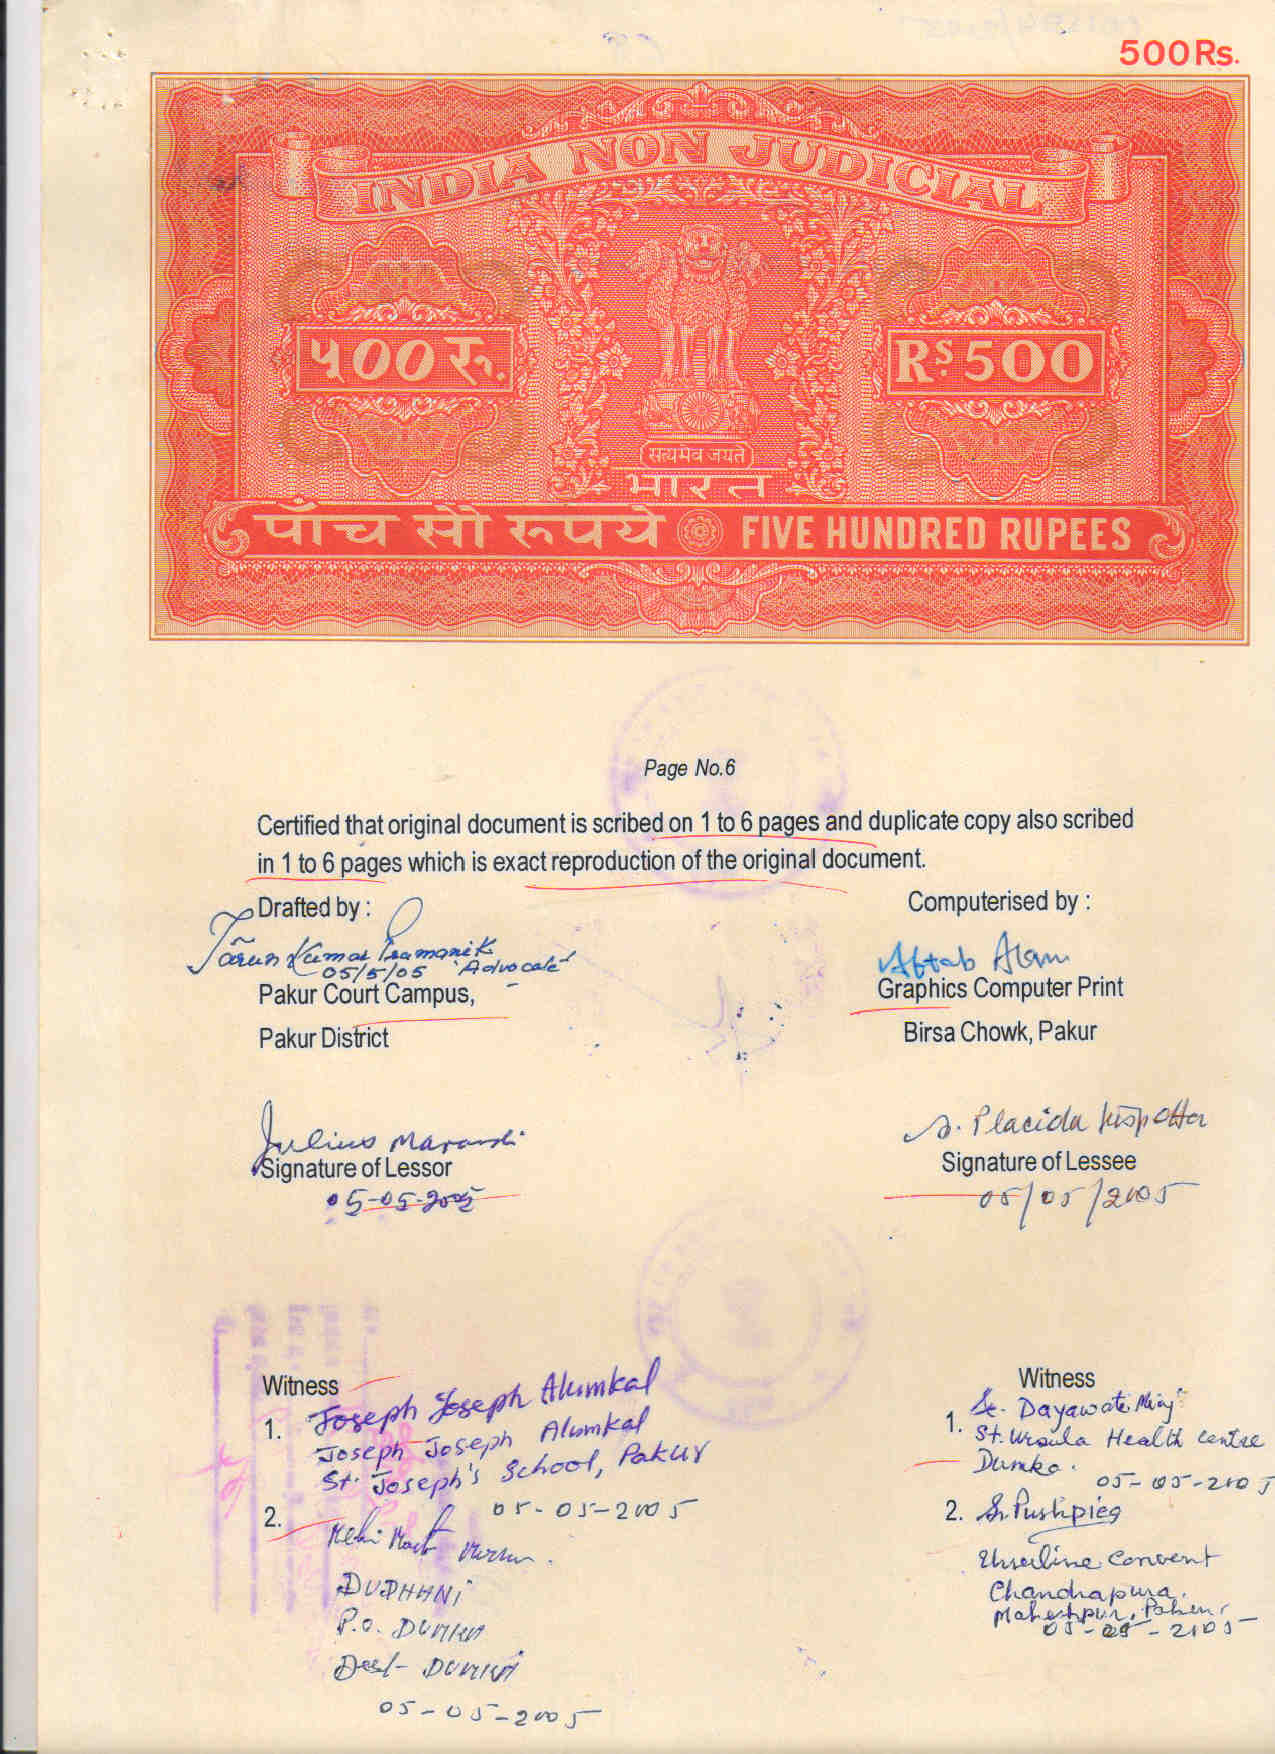 500 Rs.
INDIA NON JUDICIAL
५00 रु.
Rs. 500
सत्यमेव जयते
भारत
पाँच सौ रूपये FIVE HUNDRED RUPEES
Page No.6
Certified that original document is scribed on 1 to 6 pages and duplicate copy also scribed
in 1 to 6 pages which is exact reproduction of the original document.
Drafted by :
Tarun Kumar Pramanik
05/5/05 'Advocate'
Pakur Court Campus,
Pakur District
Computerised by :
Aftab Alam
Graphics Computer Print
Birsa Chowk, Pakur
Julius Marandi
Signature of Lessor
05-05-2005
Placida
Signature of Lessee
05/05/2005
Witness
1. Joseph Joseph Alumkal
Joseph Joseph Alumkal
St. Joseph's School, Pakur
05-05-2005
2.
DUDHANI
P.O. DUMKA
DUMKA
05-05-2005
Witness
1. Sr. Dayawati
St. Ursula Health centre
Dumka.
05-05-2005
2. Sr.
Ursuline Convent
Chandrapura.
Maheshpur, Pakur,
05-05-2005